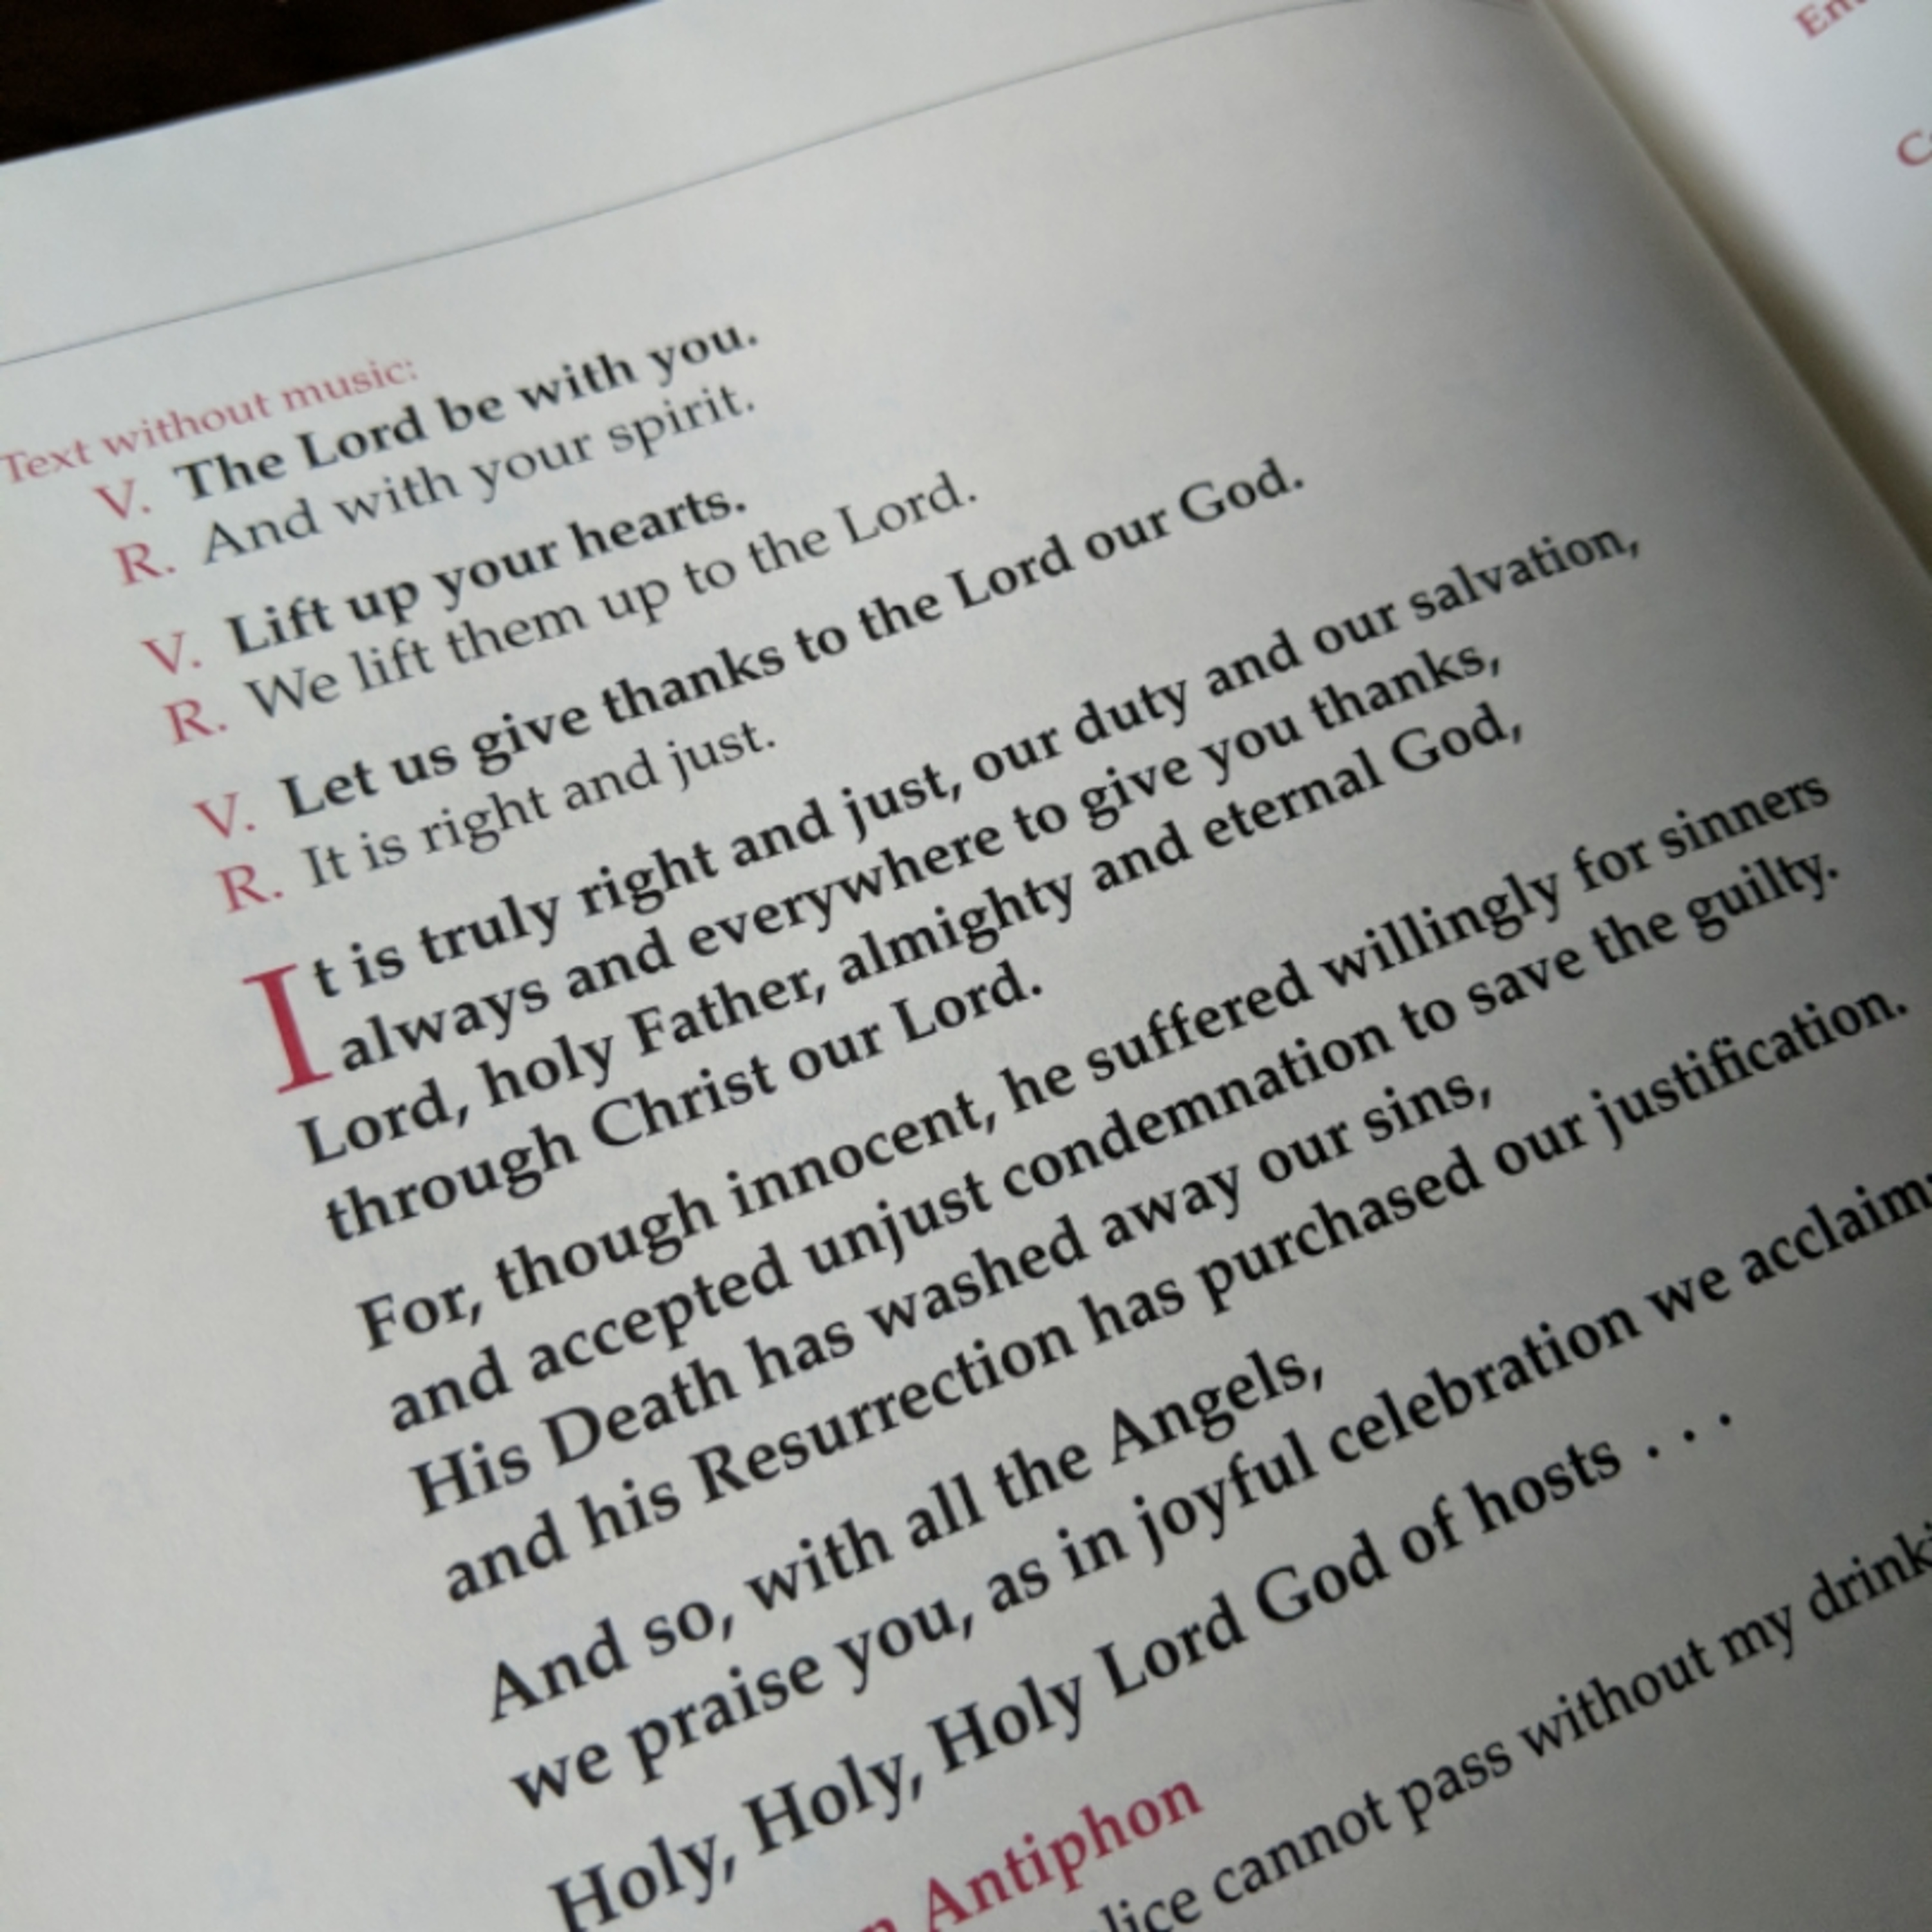 Text without music:
V. The Lord be with you.
R. And with your spirit.
V. Lift up your hearts.
R. We lift them up to the Lord.
V. Let us give thanks to the Lord our God.
R. It is right and just.
It is truly right and just, our duty and our salvation,
always and everywhere to give you thanks,
Lord, holy Father, almighty and eternal God,
through Christ our Lord.
For, though innocent, he suffered willingly for sinners
and accepted unjust condemnation to save the guilty.
His Death has washed away our sins,
and his Resurrection has purchased our justification.
And so, with all the Angels,
we praise you, as in joyful celebration we acclaim:
Holy, Holy, Holy Lord God of hosts . . .
Antiphon
cannot pass without my